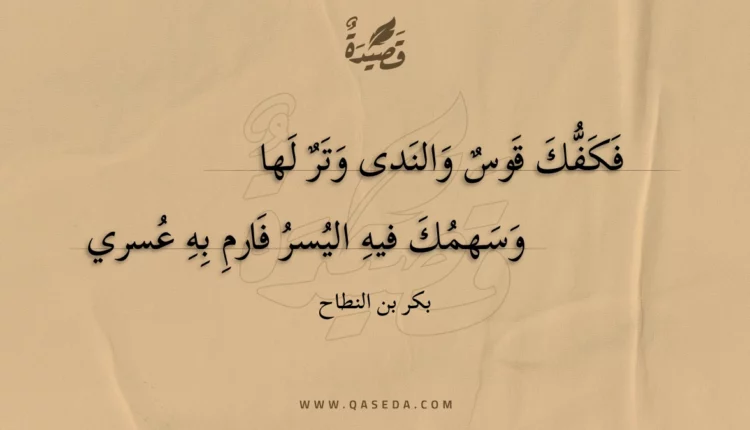 قَصِيْدَةٌ
فَكَفُّكَ قَوسٌ وَالنَدى وَتَرٌ لَها
وَسَهمُكَ فيهِ اليُسرُ فَارمِ بِهِ عُسري
بكر بن النطاح
WWW.QASEDA.COM